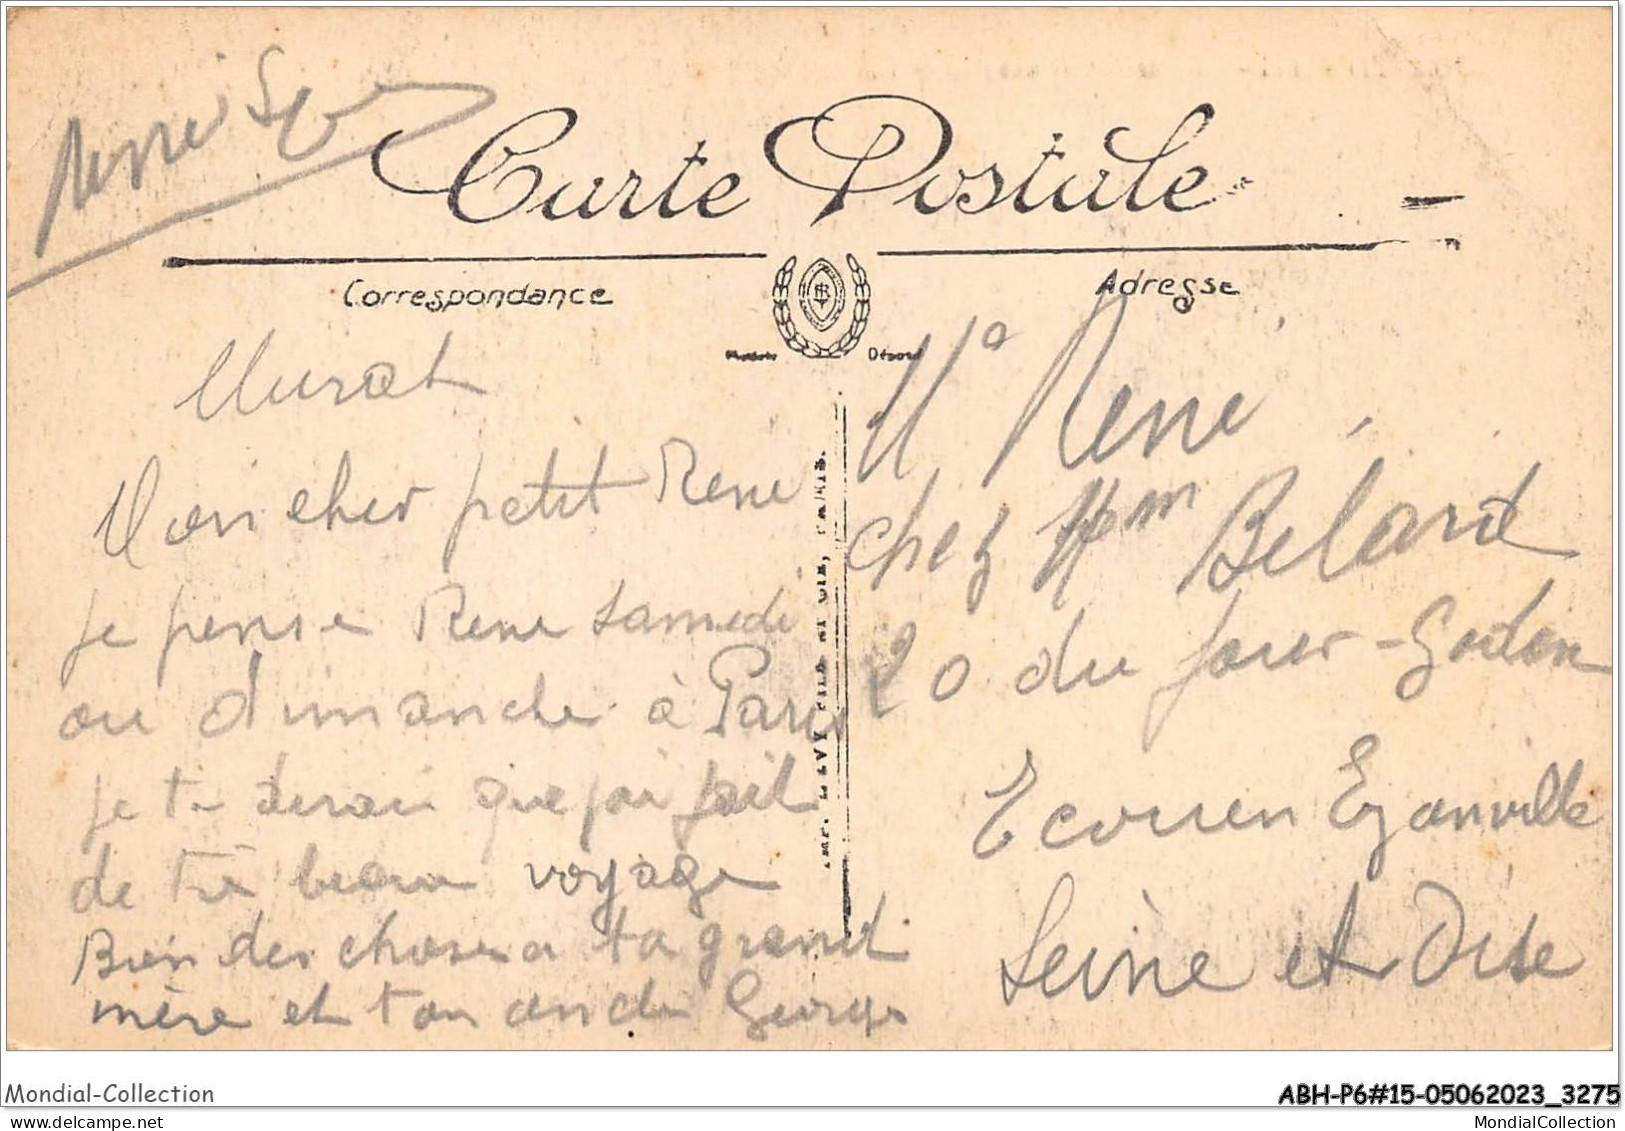 Carte Postale
Correspondance
Adresse
Murat
Mon cher petit René
je pense René samedi
ou dimanche à Paris
je te dirai que j'ai fait
de très beau voyage
Bien des choses a ta grand
mère et ton oncle Georges
René
chez Mme Belard
20 du four-Godon
Ecouen Ezanville
Seine et Oise
IMP. LEVY FILS ET CIE, PARIS.
Mondial-Collection
ABH-P6#15-05062023_3275
MondialCollection